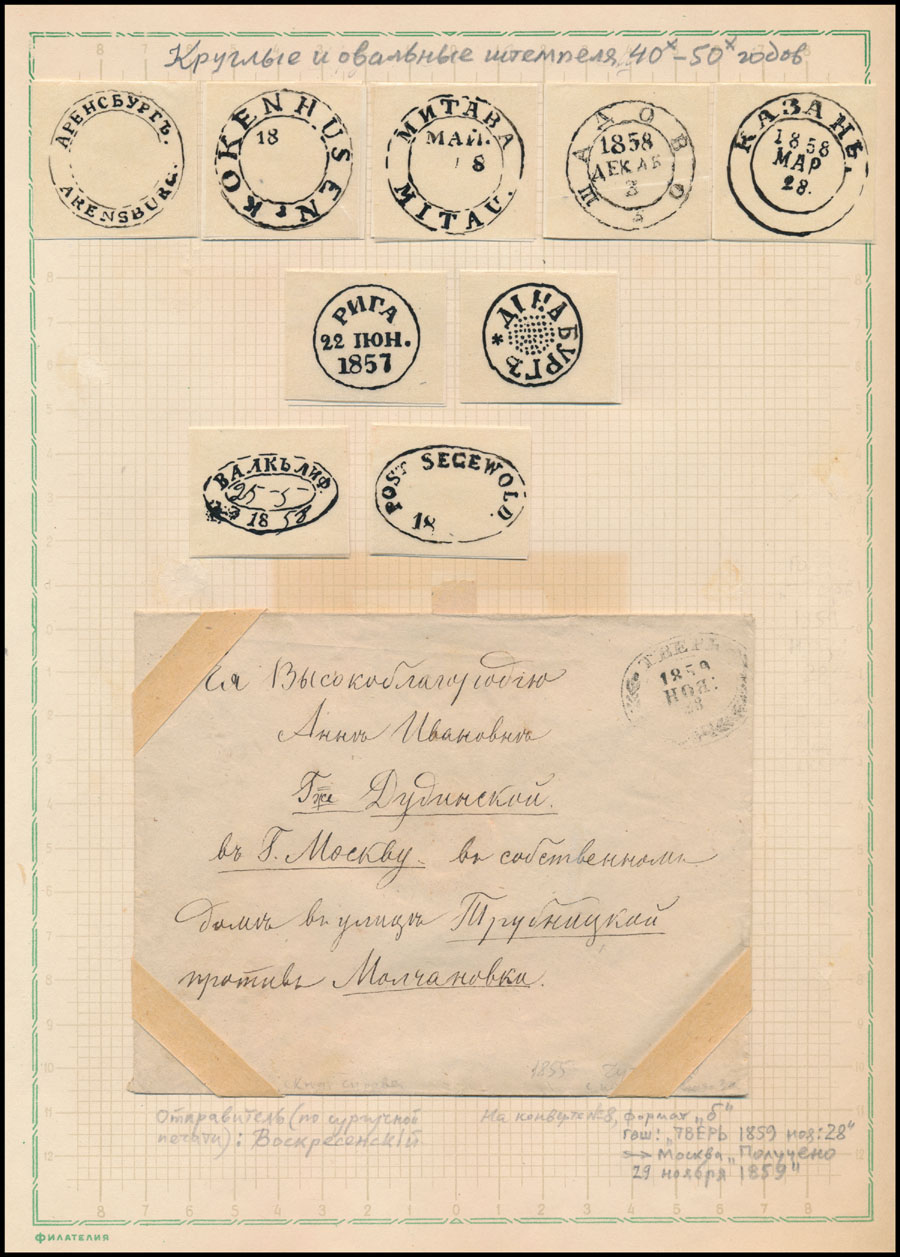 Круглые и овальные штемпеля 40х-50х годов
АРЕНСБУРГЪ.
ARENSBURG.
KOKENHUSEN
18
МИТАВА
МАЙ.
8
MITAU.
ШАДОВО
1858
ДЕКАБ
3
3
КАЗАНЬ.
1858
МАР
28.
РИГА
22 ІЮН.
1857
ДІНАБУРГЪ *
ВАЛКЪ ЛИФ.
25-5-
1858
POST SEGEWOLD.
18
ТВЕРЬ
1859
НОЯ:
28
Ея Высокоблагородію
Аннѣ Ивановнѣ
Гже Дудинской.
въ Г. Москву - въ собственномъ
домѣ въ улицѣ Трубницкой
противъ Молчановки.
1855
Отправитель (по сургучной
печати): Воскресенскій
На конверте №8, формат „б"
гош: „ТВЕРЬ 1859 ноя: 28"
→ Москва „Получено
29 ноября 1859"
ФИЛАТЕЛИЯ